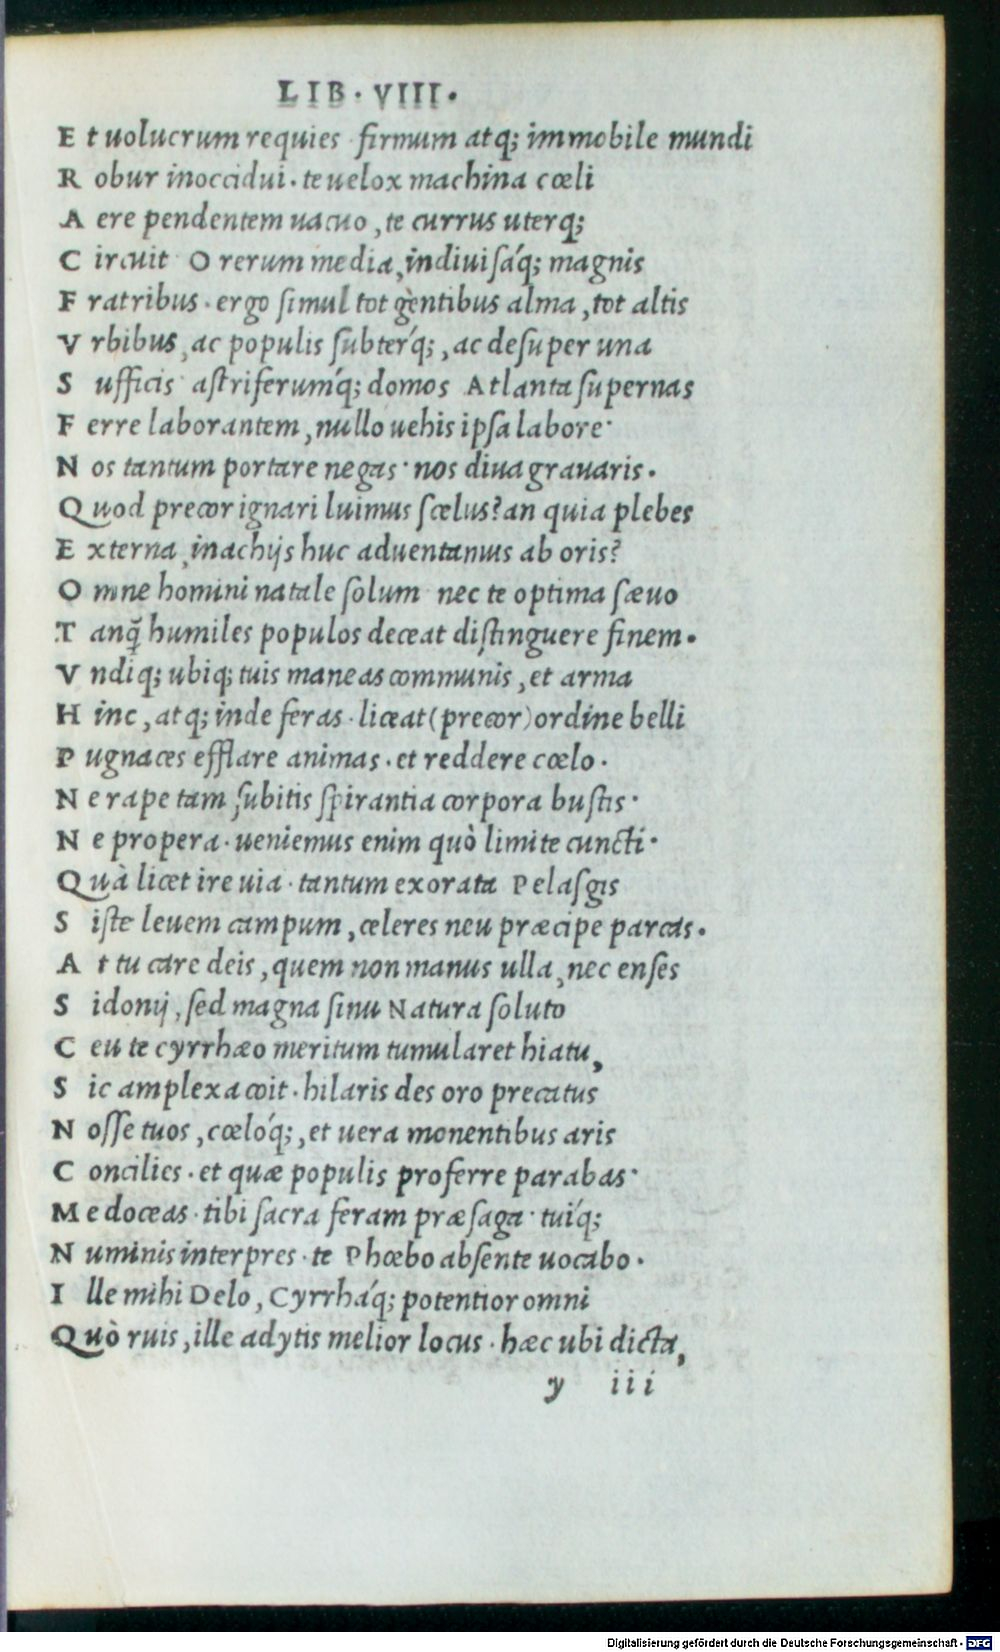 LIB·VIII·
E t uolucrum requies· firmum atq; immobile mundi
R obur inoccidui· te uelox machina cœli
A ere pendentem uacuo, te currus uterq;
C ircuit O rerum media, indiuisáq; magnis
F ratribus· ergo simul tot gentibus alma, tot altis
V rbibus, ac populis subterq́;, ac desuper una
S ufficis· astriferumq́; domos Atlanta supernas
F erre laborantem, nullo uehis ipsa labore·
N os tantum portare negas· nos diua grauaris·
Q uod precor ignari luimus scelus? an quia plebes
E xterna, inachijs huc aduentamus ab oris?
O mne homini natale solum nec te optima sæuo
T anq̃ humiles populos deceat distinguere finem·
V ndiq; ubiq; tuis maneas communis, et arma
H inc, atq; inde feras· liceat (precor) ordine belli
P ugnaces efflare animas· et reddere cœlo·
N e rape tam subitis spirantia corpora bustis·
N e propera· ueniemus enim quò limite cuncti·
Q uà licet ire uia· tantum exorata Pelasgis
S iste leuem campum, celeres neu præcipe parcas·
A t tu care deis, quem non manus ulla, nec enses
S idonij, sed magna sinu Natura soluto
C eu te cyrrhæo meritum tumularet hiatu,
S ic amplexa coit· hilaris des oro precatus
N osse tuos, cœlóq;, et uera monentibus aris
C oncilies· et quæ populis proferre parabas·
M e doceas· tibi sacra feram præsaga· tuíq;
N uminis interpres· te Phœbo absente uocabo·
I lle mihi Delo, Cyrrháq; potentior omni
Q uò ruis, ille adytis melior locus· hæc ubi dicta,
y iii
Digitalisierung gefördert durch die Deutsche Forschungsgemeinschaft - DFG